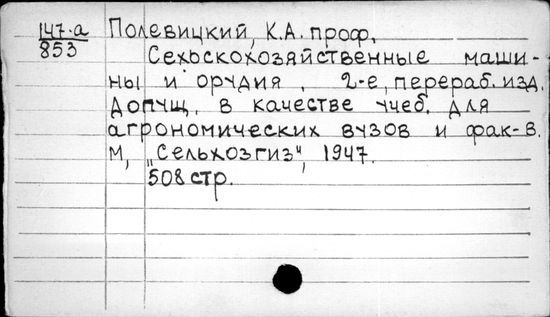 147-а Полевицкий, К.А. проф.
853 Сехьскохозяйственные маши-
ны и орудия. 2-е, перераб. изд.
Допущ. в качестве учеб. для
агрономических вузов и фак-в.
М, „Сельхозгиз", 1947.
508 стр.